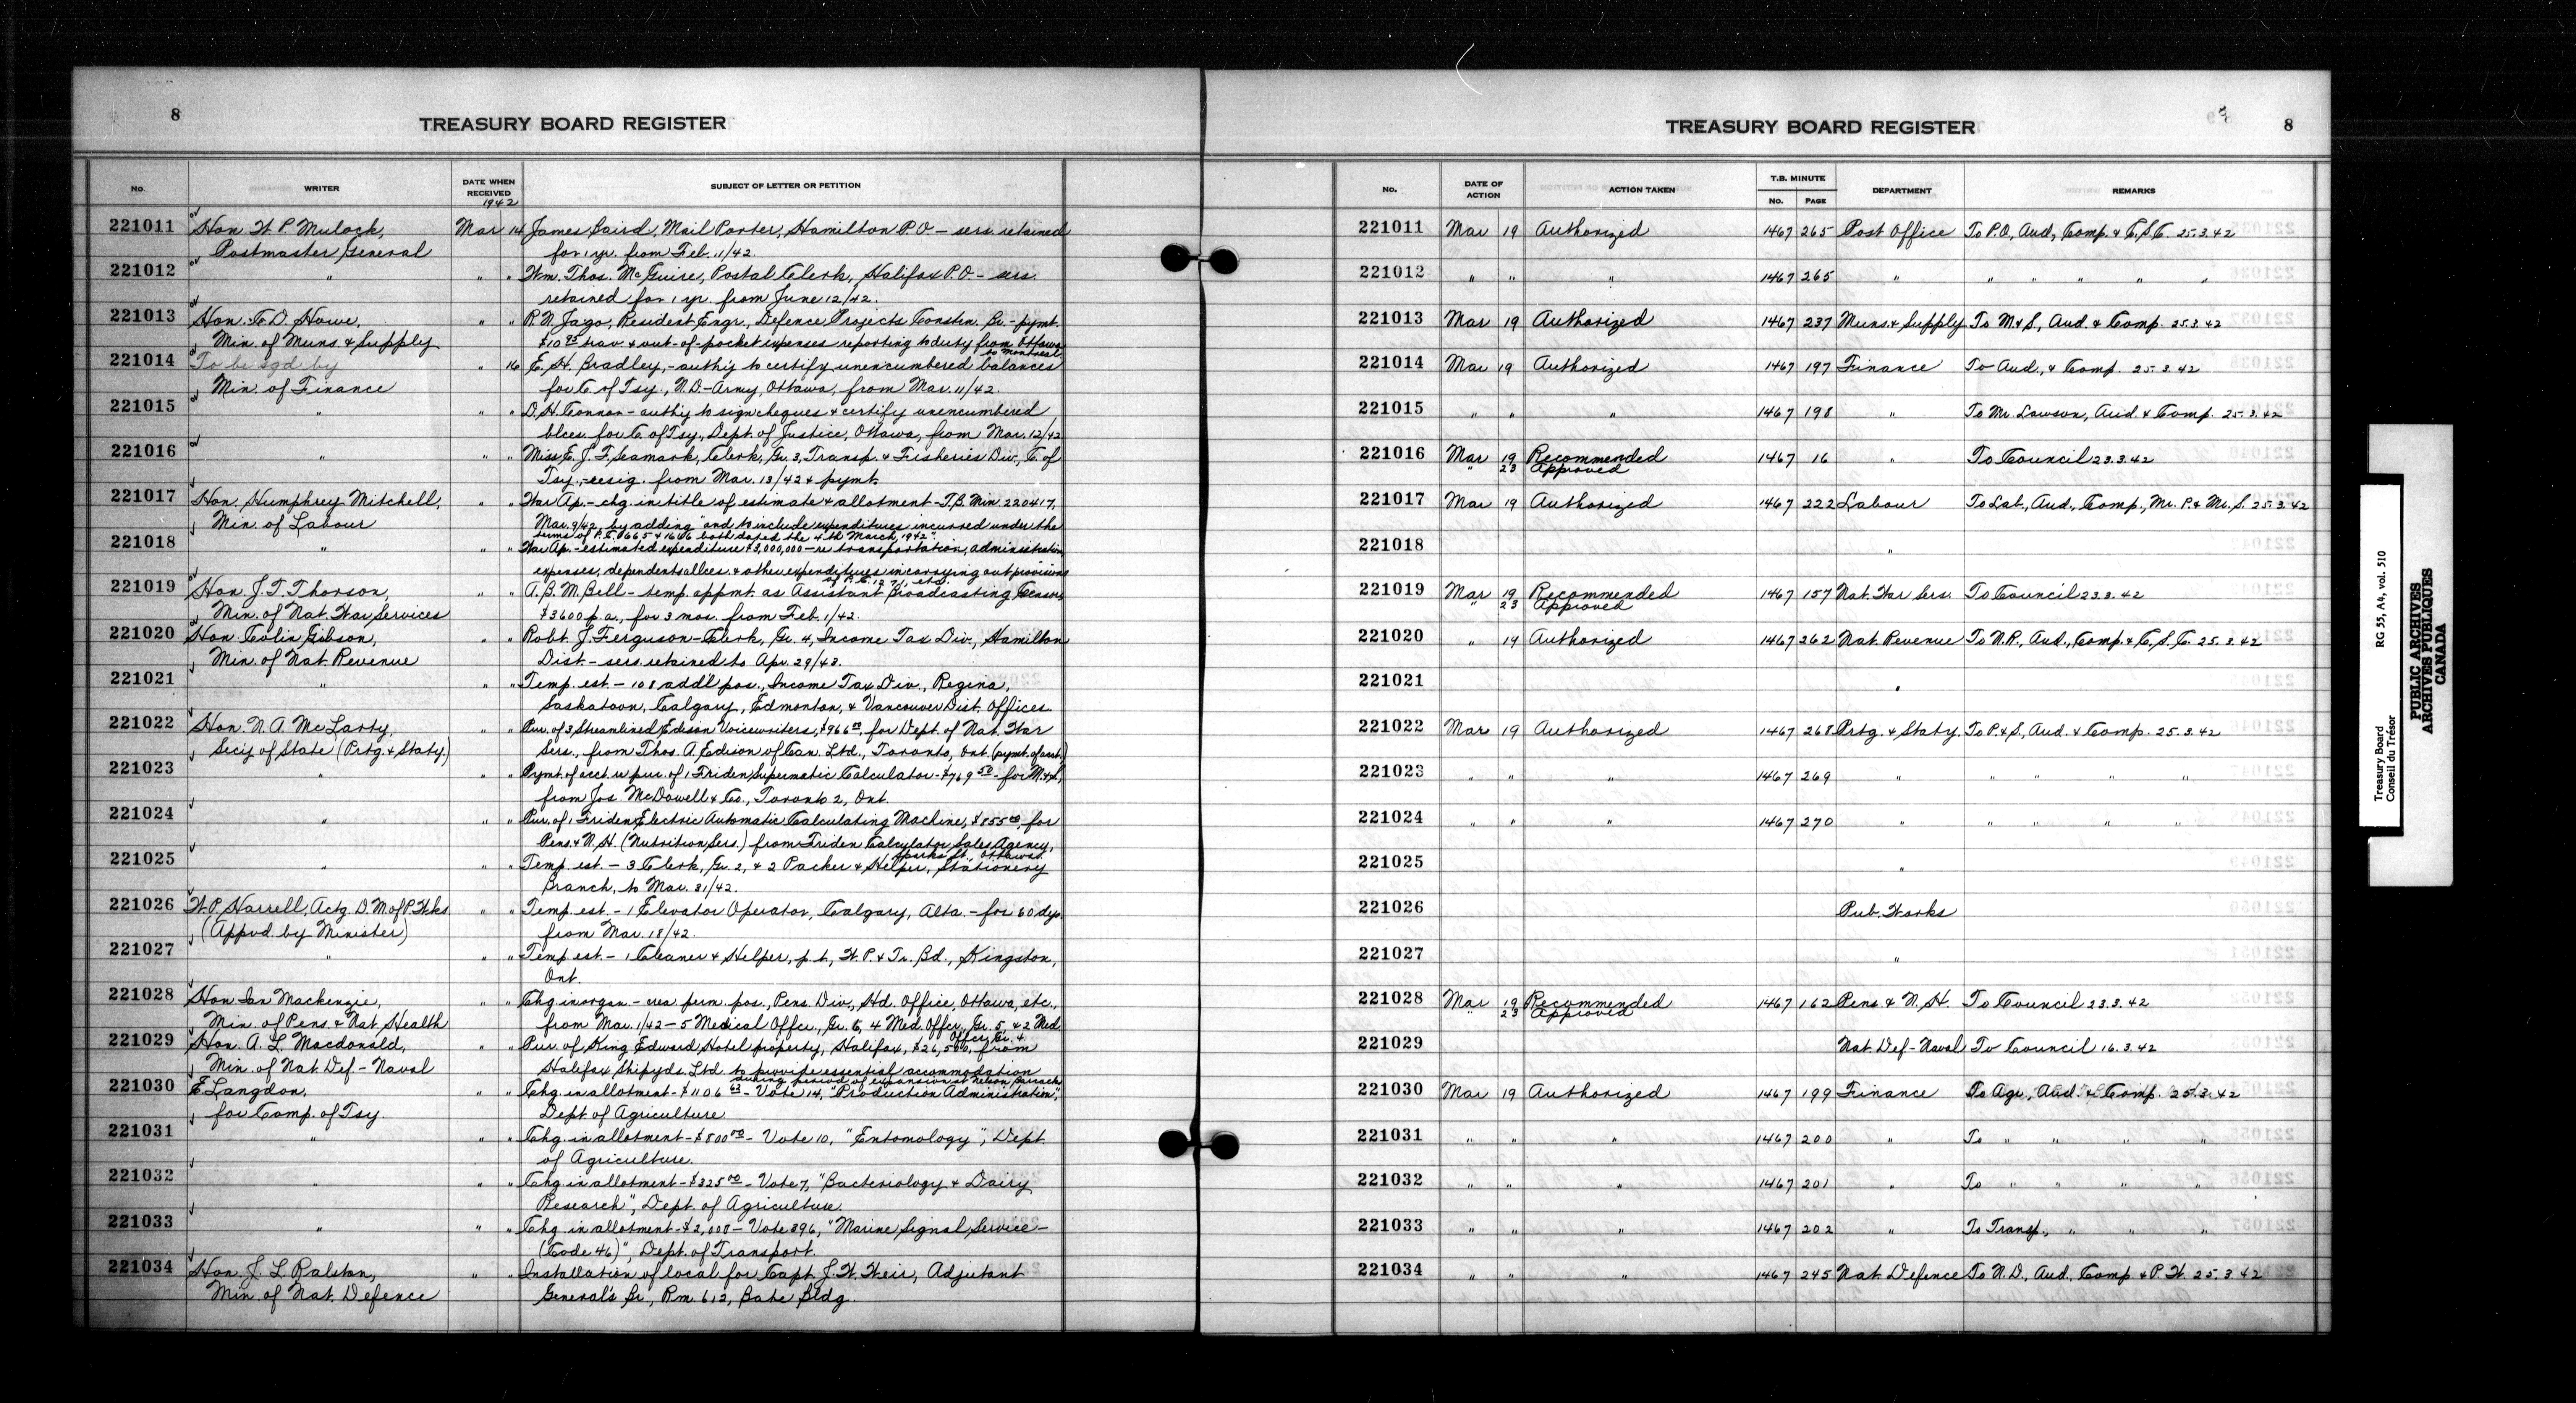 8
TREASURY BOARD REGISTER
No. WRITER DATE WHEN RECEIVED SUBJECT OF LETTER OR PETITION
1942
221011 Hon. W P Mulock, Mar 14 James Baird, Mail Porter, Hamilton P.O. - sers. retained
Postmaster General for 1 yr. from Feb. 11/42.
221012 " " " Wm. Thos. McGuire, Postal Clerk, Halifax P.O. - sers.
retained for 1 yr. from June 12/42.
221013 Hon. C.D. Howe, " " R. N. Jago, Resident Engr., Defence Projects Constn. Br. - pymt.
Min. of Muns. & Supply $10 95 trav. & out-of-pocket expenses reporting to duty from Ottawa
to Montreal
221014 To be sgd by " 16 E. H. Bradley, - auth'y to certify unencumbered balances
Min. of Finance for C. of Tsy., N.D.-Army, Ottawa, from Mar. 11/42.
221015 " " " D. H. Connor - auth'y to sign cheques & certify unencumbered
blces. for C. of Tsy., Dept. of Justice, Ottawa, from Mar. 12/42
221016 " " " Miss E. J. F. Seamark, Clerk, Gr. 3, Transp. & Fisheries Div., C. of
Tsy. - resig. from Mar. 13/42 & pymt.
221017 Hon. Humphrey Mitchell, " " War Ap. - chg. in title of estimate & allotment - T.B. Min. 220417,
Min. of Labour Mar. 9/42, by adding "and to include expenditures incurred under the
terms of P.C. 1665 & 1666 both dated the 4th March, 1942".
221018 " " " War Ap. - estimated expenditure $3,000,000 - re transportation, administration
expenses, dependents allces. & other expenditures in carrying out provisions
of P.C. 1271, etc.
221019 Hon. J. T. Thorson, " " A. B. M. Bell - temp. appmt. as Assistant Broadcasting Censor,
Min. of Nat. War Services $3600 p.a., for 3 mos. from Feb. 1/42.
221020 Hon. Colin Gibson, " " Robt. J. Ferguson - Clerk, Gr. 4, Income Tax Div., Hamilton
Min. of Nat. Revenue Dist. - sers. retained to Apr. 29/43.
221021 " " " Temp. est. - 108 add'l pos., Income Tax Div., Regina,
Saskatoon, Calgary, Edmonton, & Vancouver Dist. Offices.
221022 Hon. N. A. McLarty, " " Pur. of 3 Streamlined Edison Voicewriters, $966 00, for Dept. of Nat. War
Sec'y of State (Prtg. & Staty.) Sers., from Thos. A. Edison of Can. Ltd., Toronto, Ont. (pymt. of acct.)
221023 " " " Pymt. of acct. re pur. of 1 Friden Supermatic Calculator - $769 50 - for M. & S.,
from Jos. McDowell & Co., Toronto 2, Ont.
221024 " " " Pur. of 1 Friden Electric Automatic Calculating Machine, $855 00, for
Pens. & N. H. (Nutrition Sers.) from Friden Calculator Sales Agency,
Sparks St., Ottawa.
221025 " " " Temp. est. - 3 Clerk, Gr. 2, & 2 Packer & Helper, Stationery
Branch, to Mar. 31/42.
221026 W. P. Harrell, Actg. D. M. of P. Wks. " " Temp. est. - 1 Elevator Operator, Calgary, Alta. - for 60 dys.
(Appvd. by Minister) from Mar. 18/42.
221027 " " " Temp. est. - 1 Cleaner & Helper, p.t., W. P. & Tr. Bd., Kingston,
Ont.
221028 Hon. Ian Mackenzie, " " Chg. in organ - crea. perm. pos., Pens. Div., Hd. Office, Ottawa, etc.,
Min. of Pens. & Nat. Health from Mar. 1/42 - 5 Medical Offcr., Gr. 6, 4 Med. Offcr., Gr. 5, & 2 Med.
Offcr. Gr. 4.
221029 Hon. A. L. Macdonald, " " Pur. of King Edward Hotel property, Halifax, $26,500, from
Min. of Nat. Def. - Naval Halifax Shipyds. Ltd. to provide essential accommodation
during period of expansion at Nelson Barracks
221030 E Langdon, " " Chg. in allotment - $1106 63 - Vote 14, "Production Administration",
for Comp. of Tsy. Dept. of Agriculture
221031 " " " Chg. in allotment - $800 00 - Vote 10, "Entomology", Dept.
of Agriculture.
221032 " " " Chg. in allotment - $325 00 - Vote 7, "Bacteriology & Dairy
Research", Dept. of Agriculture.
221033 " " " Chg. in allotment - $2,000 - Vote 396, "Marine Signal Service -
(Code 46)", Dept. of Transport.
221034 Hon. J. L. Ralston, " " Installation of local for Capt. J. W. Weir, Adjutant
Min. of Nat. Defence General's Br., Rm. 612, Bate Bldg.
8
TREASURY BOARD REGISTER
No. DATE OF ACTION ACTION TAKEN T.B. MINUTE No. PAGE DEPARTMENT REMARKS
221011 Mar 19 Authorized 1467 265 Post Office To P.O., Aud., Comp. & C.S.C. 25.3.42
221012 " " " 1467 265 " " " " " "
221013 Mar 19 Authorized 1467 237 Muns. & Supply To M. & S., Aud. & Comp. 25.3.42
221014 Mar 19 Authorized 1467 197 Finance To Aud., & Comp. 25.3.42
221015 " " " 1467 198 " To Mr. Lawson, Aud. & Comp. 25.3.42
221016 Mar 19 Recommended 1467 16 " To Council 23.3.42
" 23 Approved
221017 Mar 19 Authorized 1467 222 Labour To Lab., Aud., Comp., Mr. P. & Mr. S. 25.3.42
221018 "
221019 Mar 19 Recommended 1467 157 Nat. War Sers. To Council 23.3.42
" 23 Approved
221020 " 19 Authorized 1467 262 Nat. Revenue To N.R., Aud., Comp. & C.S.C. 25.3.42
221021 "
221022 Mar 19 Authorized 1467 268 Prtg. & Staty. To P. & S., Aud. & Comp. 25.3.42
221023 " " " 1467 269 " " " "
221024 " " " 1467 270 " " " " "
221025 "
221026 Pub. Works
221027 "
221028 Mar 19 Recommended 1467 162 Pens. & N. H. To Council 23.3.42
" 23 Approved
221029 Nat. Def - Naval To Council 16.3.42
221030 Mar 19 Authorized 1467 199 Finance To Agr., Aud. & Comp. 25.3.42
221031 " " " 1467 200 " To " " " "
221032 " " " 1467 201 " To " " " "
221033 " " " 1467 202 " To Transp., " " "
221034 " " " 1467 245 Nat. Defence To N.D., Aud., Comp. & P.W. 25.3.42
Treasury Board RG 55, A4, vol. 510
Conseil du Trésor
PUBLIC ARCHIVES
ARCHIVES PUBLIQUES
CANADA